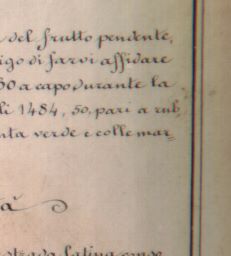 del frutto pendente,
igo di farvi affidare
30 a capo durante la
li 1484, 50, pari a rub,
nta verde e colle mar=
à
strada latina